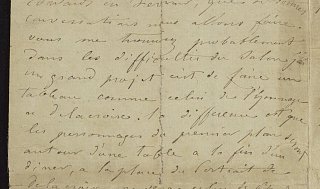 conversations nous allons faire
vous me trouvez probablement
dans les difficultés du Salon, j'ai
un grand projet c'est de faire un
tableau comme celui de l'hommage
a delacroix. la difference est que
les personnages du premier plan seront
autour d'une table a la fin d'un
diner, a la place du Portrait de